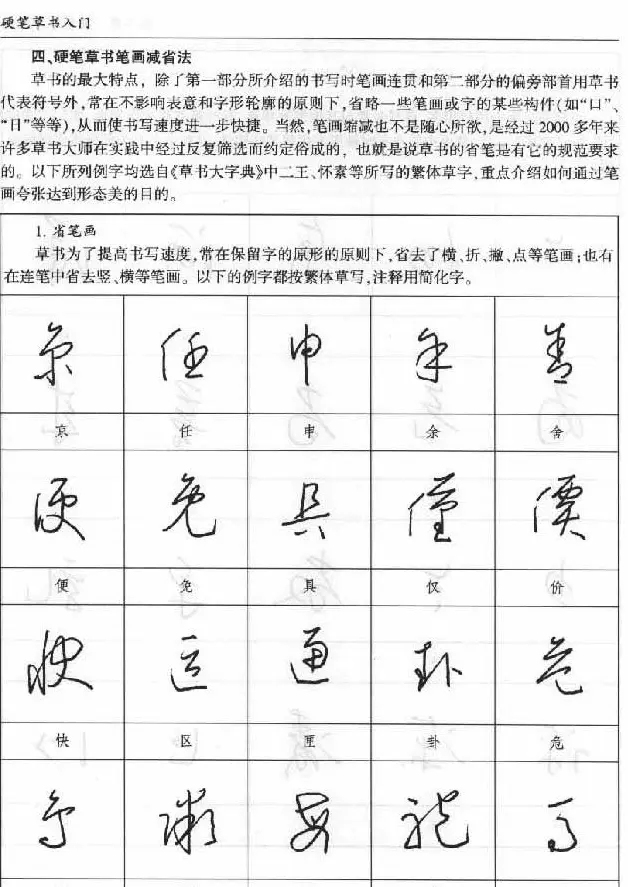 硬笔草书入门
四、硬笔草书笔画减省法
草书的最大特点，除了第一部分所介绍的书写时笔画连贯和第二部分的偏旁部首用草书
代表符号外，常在不影响表意和字形轮廓的原则下，省略一些笔画或字的某些构件（如“口”、
“日”等等），从而使书写速度进一步快捷。当然，笔画缩减也不是随心所欲，是经过 2000 多年来
许多草书大师在实践中经过反复筛选而约定俗成的，也就是说草书的省笔是有它的规范要求
的。以下所列例字均选自《草书大字典》中二王、怀素等所写的繁体草字，重点介绍如何通过笔
画夸张达到形态美的目的。
1. 省笔画
草书为了提高书写速度，常在保留字的原形的原则下，省去了横、折、撇、点等笔画；也有
在连笔中省去竖、横等笔画。以下的例字都按繁体草写，注释用简化字。
京 任 申 余 舍
京 任 申 余 舍
便 免 具 僅 價
便 免 具 仅 价
快 区 匣 卦 危
快 区 匣 卦 危